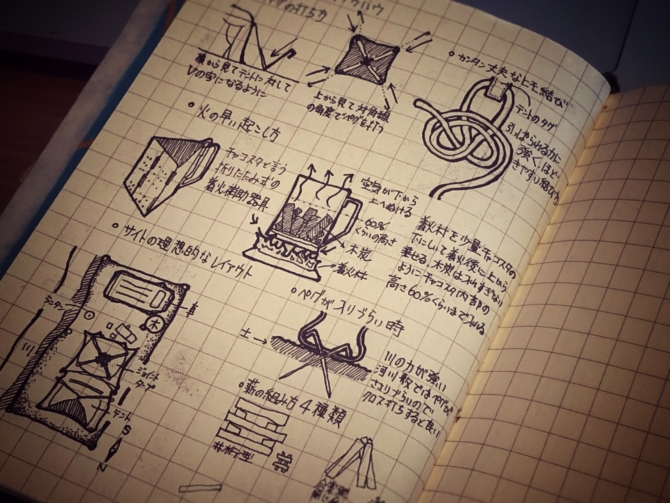 の打ち方
横から見てテントに対して
Vの字になるように
上から見て対角線
の角度でペグを打つ
○カンタン丈夫なヒモ結び
テントのタグ
引っぱられる力に
強く、ほど
○火の早い起こし方
チャコスタと言う
折りたたみ式の
着火補助器具
空気が下から
上へぬける
60%
くらいの高さ
木炭
着火材
着火材を少量チャコスタの
下にして着火後に上から
乗せる。木炭は入れすぎない
ようにチャコスタ(内部)の
高さ60%くらいまで入れる
○サイトの理想的なレイアウト
川
テント
S
N
○ペグが入りづらい時
土→
川の力が強い
河川敷ではペグが
ささりづらいので
クロスギミすると良い
○薪の組み方4種類
井桁型